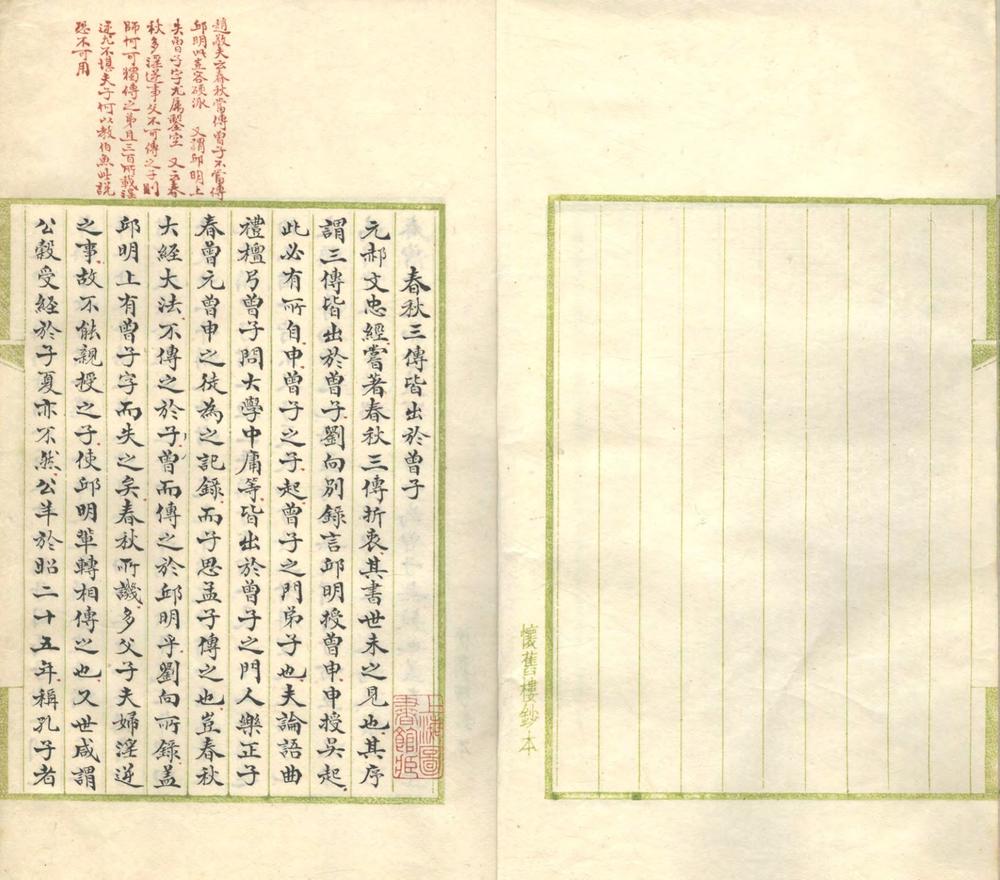 懷舊樓鈔本
趙敬夫云春秋當傳曾子不當傳
邱明此直容硬派 又謂邱明上
失曾子字尤屬鑿空 又云春
秋多淫逆事父不可傳之子則
師何可獨傳之弟且三百所載淫
逆尤不堪夫子何以教伯魚此說
恐不可用
春秋三傳皆出於曾子
元郝文忠經嘗著春秋三傳折衷其書世未之見也其序
謂三傳皆出於曾子劉向別錄言邱明授曾申申授吳起
此必有所自申曾子之子起曾子之門弟子也夫論語曲
禮檀弓曾子問大學中庸等皆出於曾子之門人樂正子
春曾元曾申之徒為之記錄而子思孟子傳之也豈春秋
大經大法不傳之於子曾而傳之於邱明乎劉向所錄蓋
邱明上有曾子字而失之矣春秋所譏多父子夫婦淫逆
之事故不能親授之子使邱明軰轉相傳之也又世咸謂
公穀受經於子夏亦不然公羊於昭二十五年稱孔子者
上海圖
書館藏